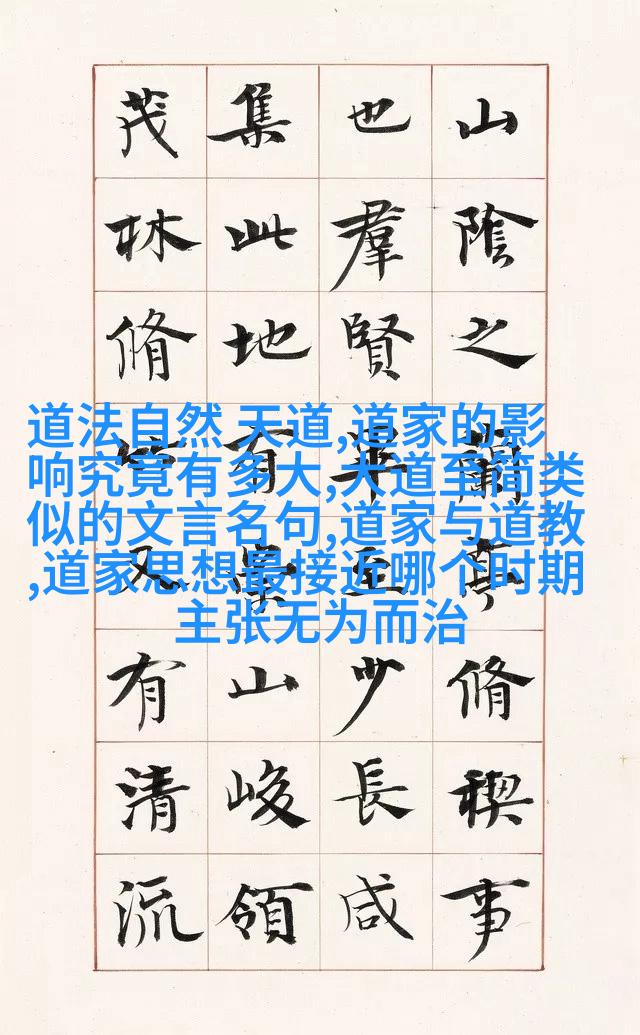 山陰之蘭亭脩稧事
也羣賢畢至少長咸
集此地有崇山峻領
茂林脩竹又有清流
道法自然 天道,道家的影
响究竟有多大,大道至简类
似的文言名句,道家与道教
,道家思想最接近哪个时期
主张无为而治